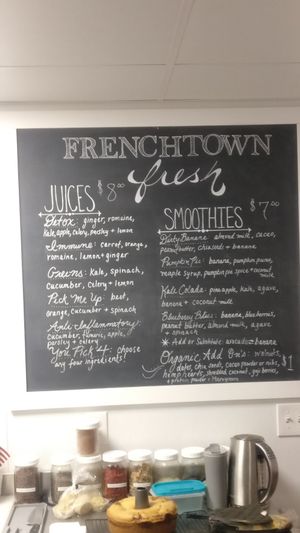 FRENCHTOWN
fresh
JUICES $8.00
Detox: ginger, romaine,
Kale, apple, celery, parsley + lemon
Immune: carrot, orange,
romaine, lemon + ginger
Greens: Kale, spinach,
cucumber, celery + lemon
Pick Me Up: beet,
orange, cucumber + spinach
Anti-Inflammatory
cucumber, turmeric, apple,
parsley + celery
You Pick 4: choose
any four ingredients!
SMOOTHIES $7.00
Dirty Banana: almond milk, cacao,
peanut butter, chiaseeds + banana
Pumpkin Pie: banana, pumpkin puree,
maple syrup, pumpkin pie spice + coconut
milk
Kale Colada: pineapple, kale, agave,
banana + coconut milk
Blueberry Blues: banana, blueberries,
peanut butter, almond milk, agave
+ spinach
* Add or Substitute: avocado or banana
Organic Add On's: walnuts, $1
dates, chia seeds, cacao powder or nibs,
hemp hearts, shredded coconut, goji berries,
protein powder +